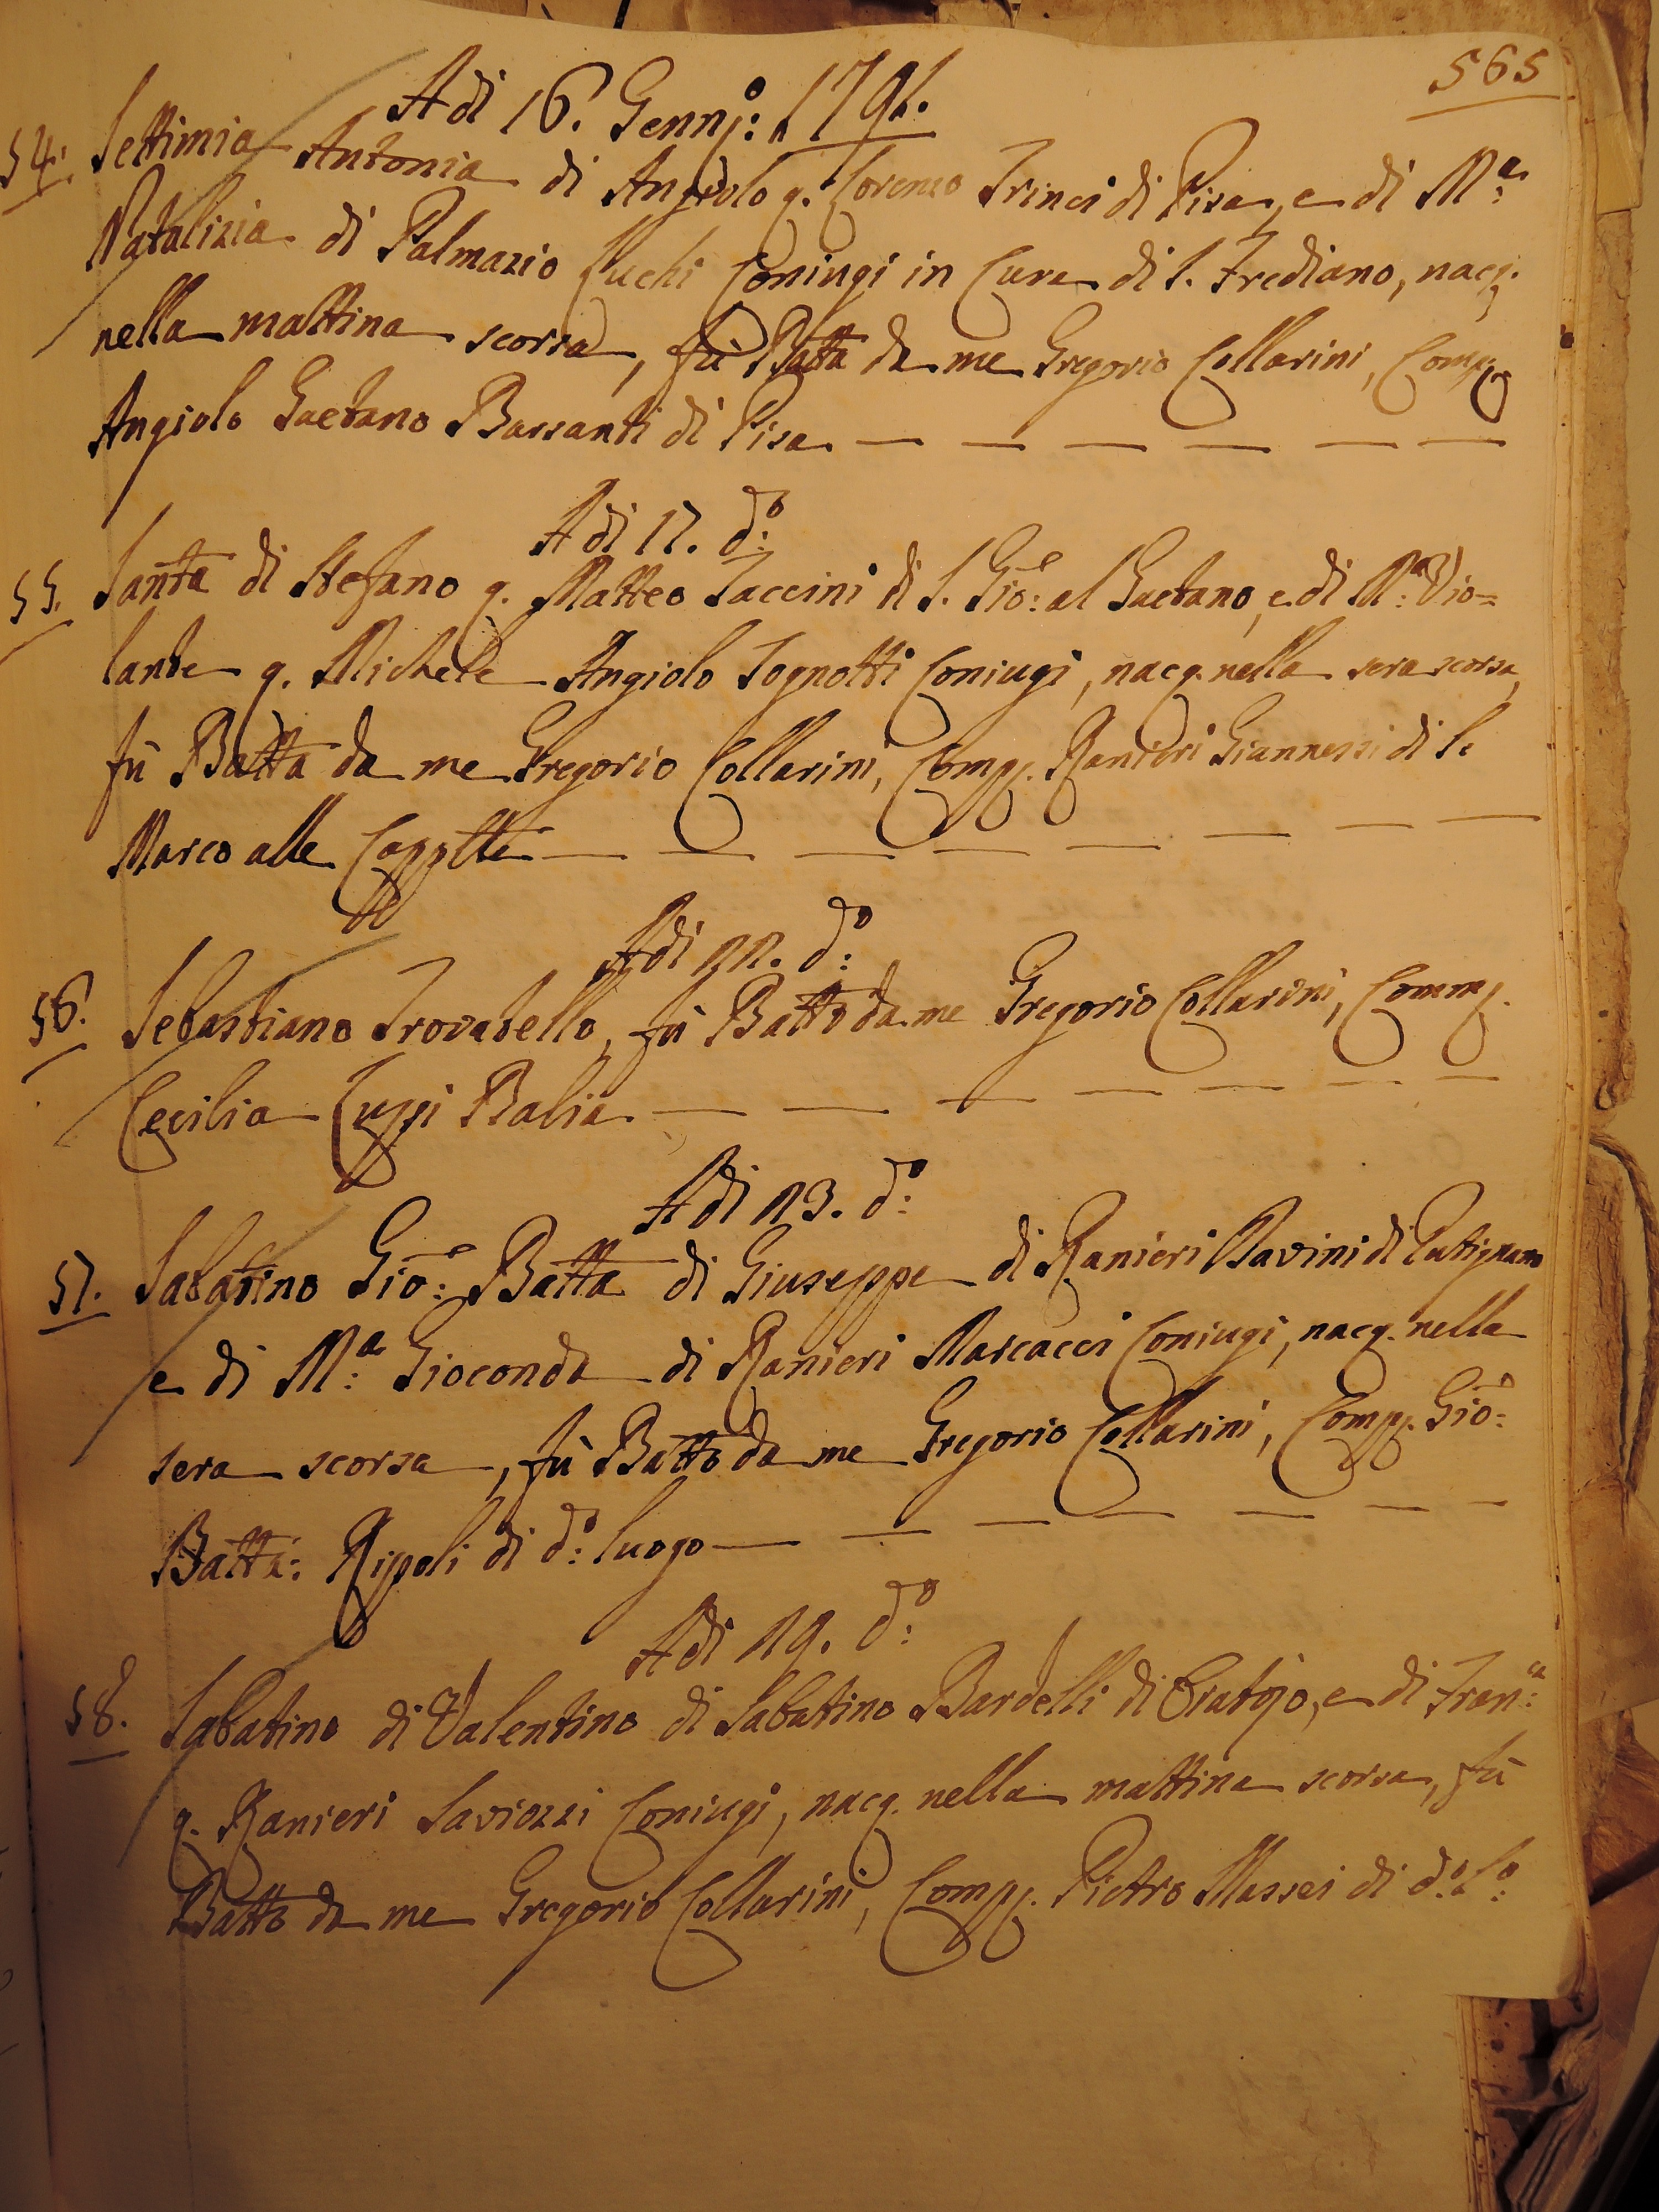 565
Adi 16. Gennj:º 1791.
54. Settimia Antonia di Angiolo q. Lorenzo Trinci di Pisa, e di M:ª
Natalizia di Palmazio Luchi Coniugi in Cura di S. Frediano, nacq.
nella mattina scorsa, fù Batta da me Gregorio Collarini, Comp.
Angiolo Gaetano Barsanti di Pisa
Adi 17. d:º
55. Santa di Stefano q. Matteo Taccini di S. Gio: al Gaetano, e di M:ª Vio=
lante q. Michele Angiolo Tognotti Coniugi, nacq. nella sera scorsa,
fù Batta da me Gregorio Collarini, Comp. Ranieri Giannessi di S.
Marco alle Cappelle
Adi 22. d:º
56. Sebastiano Trovatello, fù Batto da me Gregorio Collarini, Comm.
Cecilia Luppi Balia
Adi 23. d:º
57. Sabatino Gio: Batta di Giuseppe di Ranieri Pavini di Putignano
e di M:ª Gioconda di Ranieri Marcacci Coniugi, nacq. nella
sera scorsa, fù Batto da me Gregorio Collarini, Comp. Gio:
Batta: Ripoli di d:º luogo
Adi 29. d:º
58. Sabatino di Valentino di Sabatino Bardelli di Oratojo, e di Fran:ª
q. Ranieri Saviozzi Coniugi, nacq. nella mattina scorsa, fù
Batto da me Gregorio Collarini, Comp. Pietro Massei di d:º L:º